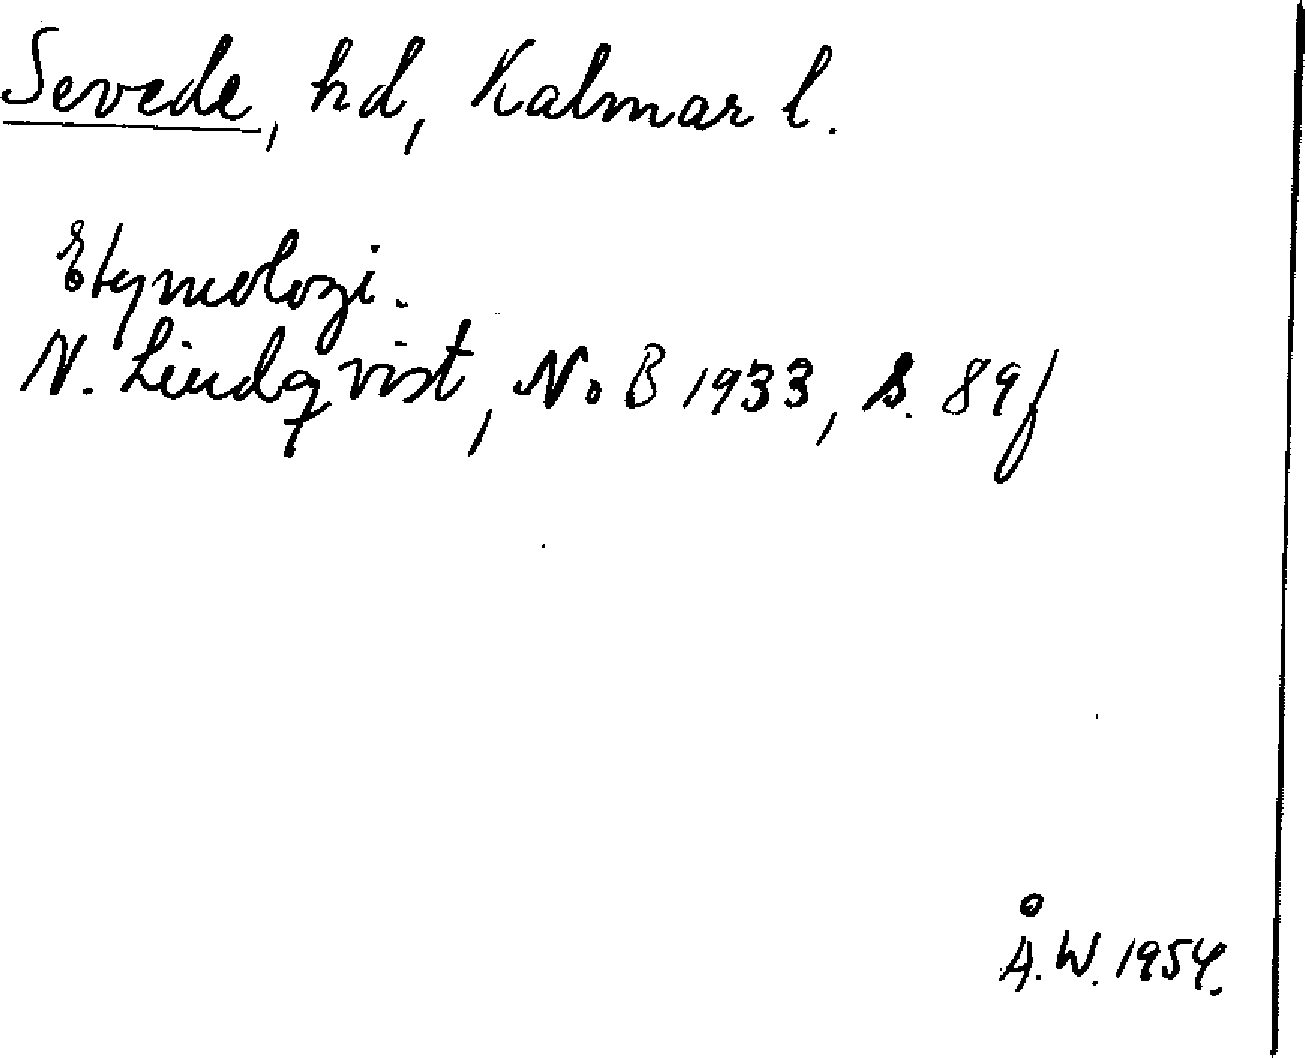 Sevede, hd, Kalmar l.
Etymologi.
N. Lindqvist, NoB 1933, s. 89f
Å.W. 1954.